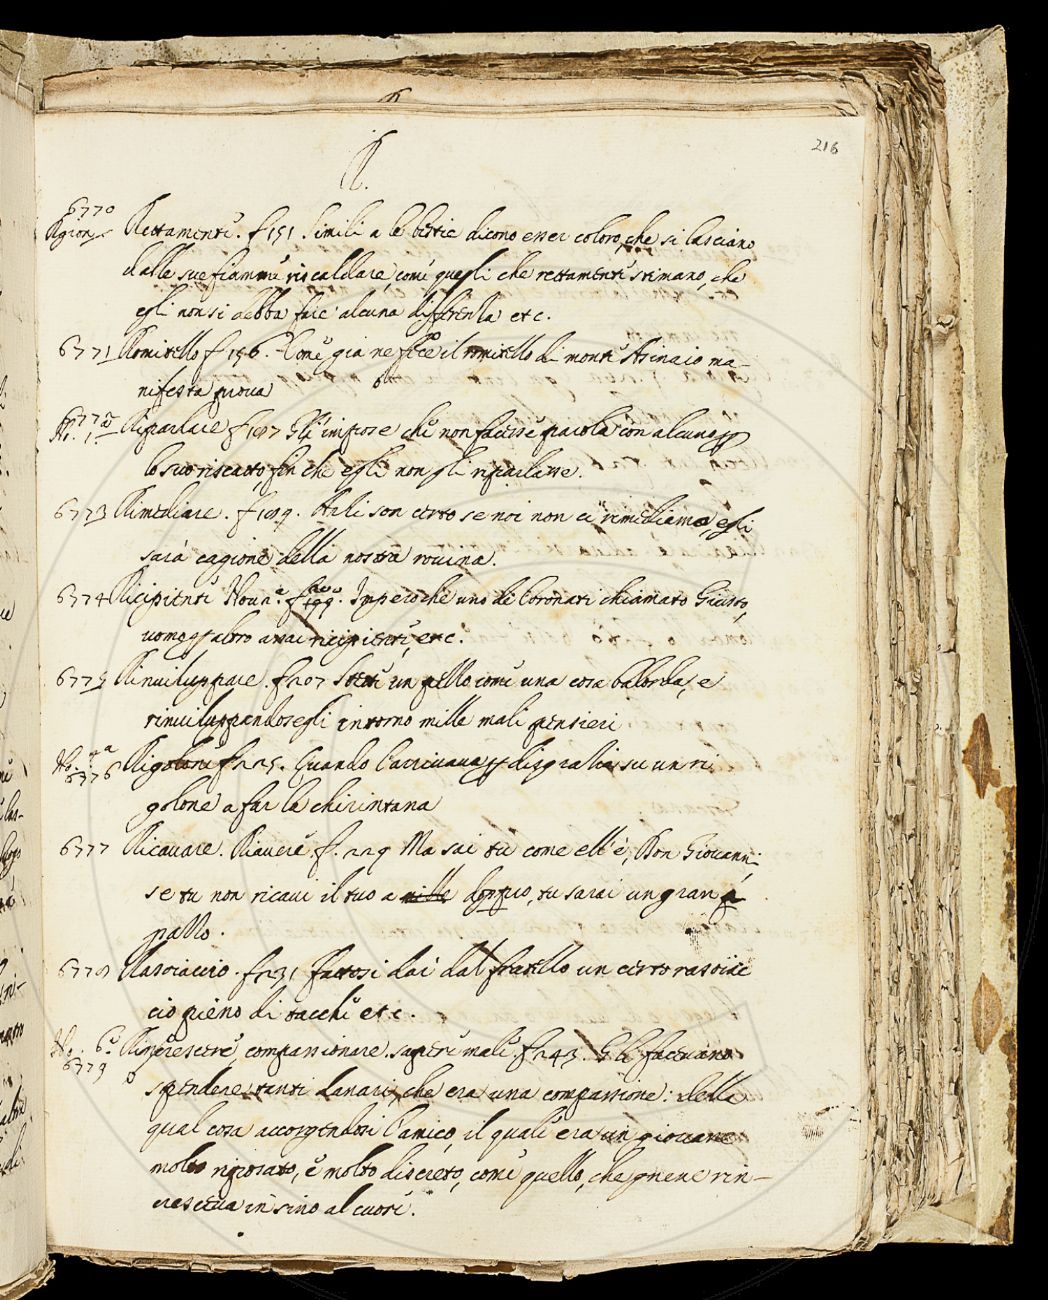 216
R.
6770
Rettamente. f 151. simili a le bestie dicono esser coloro, che si lasciano
dalle sue fiamme riscaldare, come quegli che rettamente stimano, che
egli non si debba fare alcuna differenza etc.
6771 Romitello f 156. Come già ne fece il romitello di monte Asinaio ma-
nifesta pruova
6772 Riparlare f 187 Gli impose che non facesse parola con alcuno
lo suo riscatto, fin che egli non gli riparlasse.
6773 Rimediare. f 189. Anzi son certo se noi non ci rimediamo, egli
sarà cagione della nostra rovina.
6774 Ricipiente Nov. f 199. Imperoche uno de Coronati chiamato Giusto,
uomo assai ricipiente, etc.
6775 Rinviluppare. f 207 Stette un pezzo come una cosa balorda, e
rinviluppandosegli intorno mille mali pensieri
6776 Rigolone f 225. Quando l'arrivava disgrazia su un ri
golone a far la chirintana
6777 Ricavare. Riavere. f. 229 Ma sai tu come ell'è, Don Giovanni,
se tu non ricavi il tuo a doppio, tu sarai un gran
pazzo.
6778 Rasoiaccio. f 231 fattosi dai dal fratello un certo rasoiac
cio pieno di tacche etc.
6779 Rincrescere, compassionare. saper male. f 243. Gli facevano
spendere tanti danari, che era una compassione: della
qual cosa accorgendosi l'amico, il quale era un giovane
molto riposato, e molto discreto, come quello, che gnene rin-
cresceva insino al cuore.